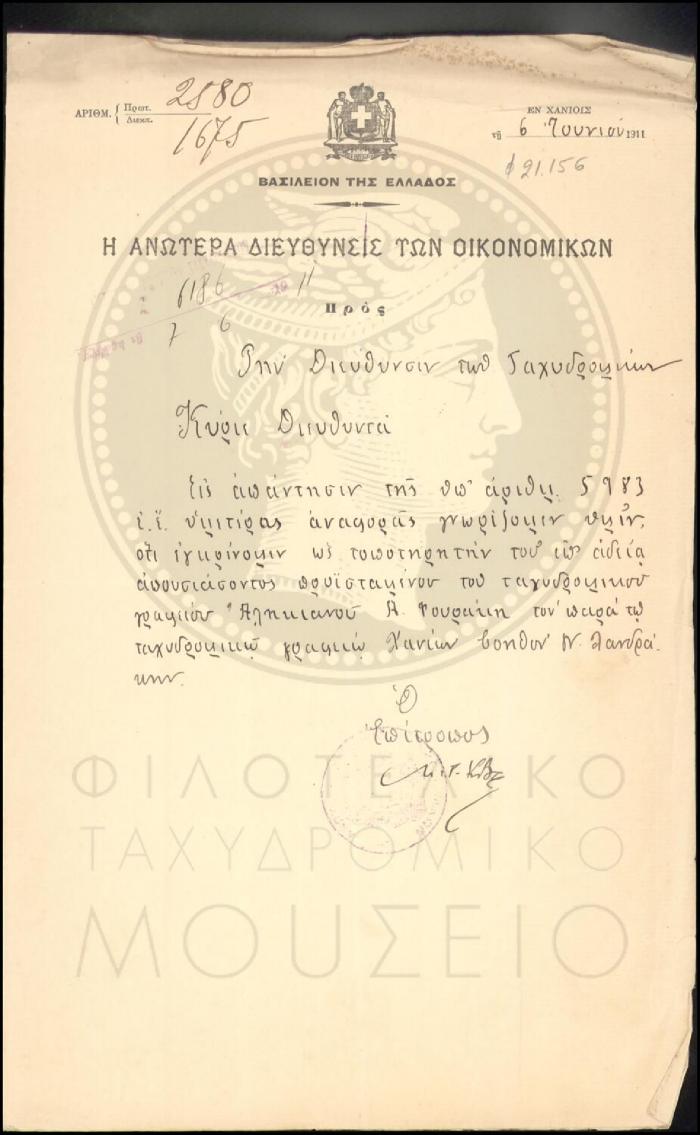 ΑΡΙΘΜ. { Πρωτ. 2580
Διεκπ. 1675
ΕΝ ΧΑΝΙΟΙΣ
τῇ 6 Ἰουνίου 1911
21.156
ΒΑΣΙΛΕΙΟΝ ΤΗΣ ΕΛΛΑΔΟΣ
Η ΑΝΩΤΕΡΑ ΔΙΕΥΘΥΝΣΙΣ ΤΩΝ ΟΙΚΟΝΟΜΙΚΩΝ
6186 11
7 6
Πρὸς
Τὴν Διεύθυνσιν τῶν Ταχυδρομικῶν
Κύριε Διευθυντὰ
Εἰς ἀπάντησιν τῆς ὑπ' ἀριθμ. 5983
ἐ.ἔ. ὑμετέρας ἀναφορᾶς γνωρίζομεν ὑμῖν,
ὅτι ἐγκρίνομεν ὡς τοποτηρητὴν τοῦ ἐπ' ἀδείᾳ
ἀπουσιάσοντος προϊσταμένου τοῦ ταχυδρομικοῦ
γραφείου Ἀληκιανοῦ Α. τὸν παρὰ τῷ
ταχυδρομικῷ γραφείῳ Χανίων βοηθὸν Ν. Λανδρά
κην.
Ὁ
Ἐπίτροπος
ΦΙΛΟΤΕΛΙΚΟ
ΤΑΧΥΔΡΟΜΙΚΟ
ΜΟΥΣΕΙΟ